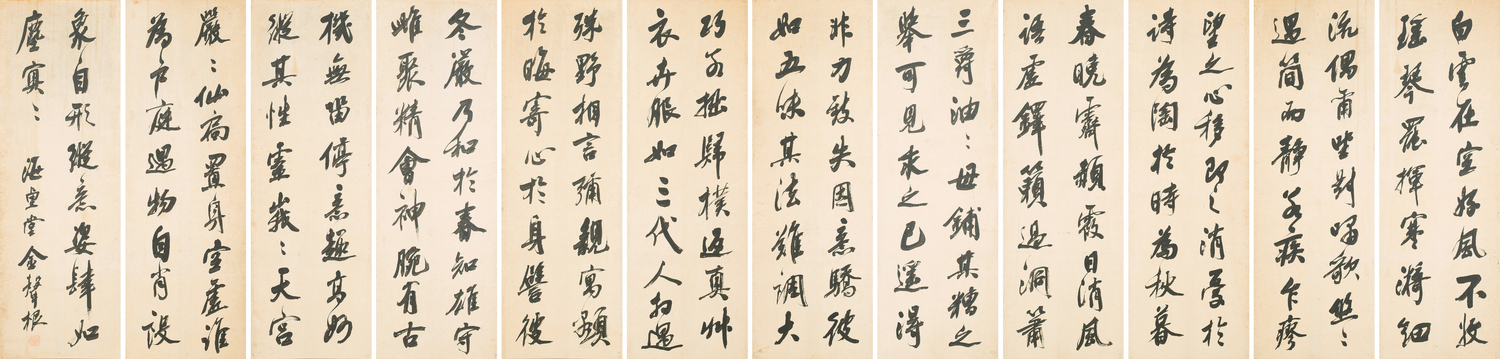 白雲在空好風不收
瑤琴罷揮寒漪細
流偶爾坐對嘯歌悠〻
遇簡而靜若疾乍瘳
望之心移即之消憂於
詩為陶於時為秋暮
春曉霽頳霞日消風
語虛鐸籟過洞簫
三爵油〻毋餔其糟之
舉可見求之已遙得
非力致失因意驕彼
如五味其法難調大
巧若拙歸樸返真艸
衣卉服如三代人相遇
殊野相言彌親寓顯
於晦寄心於身譬彼
冬嚴乃和於春知雄守
雌聚精會神腕有古
機無留停意趣高妙
縱其性靈峩〻天宮
嚴〻仙扃置身空虛誰
為戶庭遇物自肖設
象自形縱意姿肆如
塵冥〻 海里堂金聲根